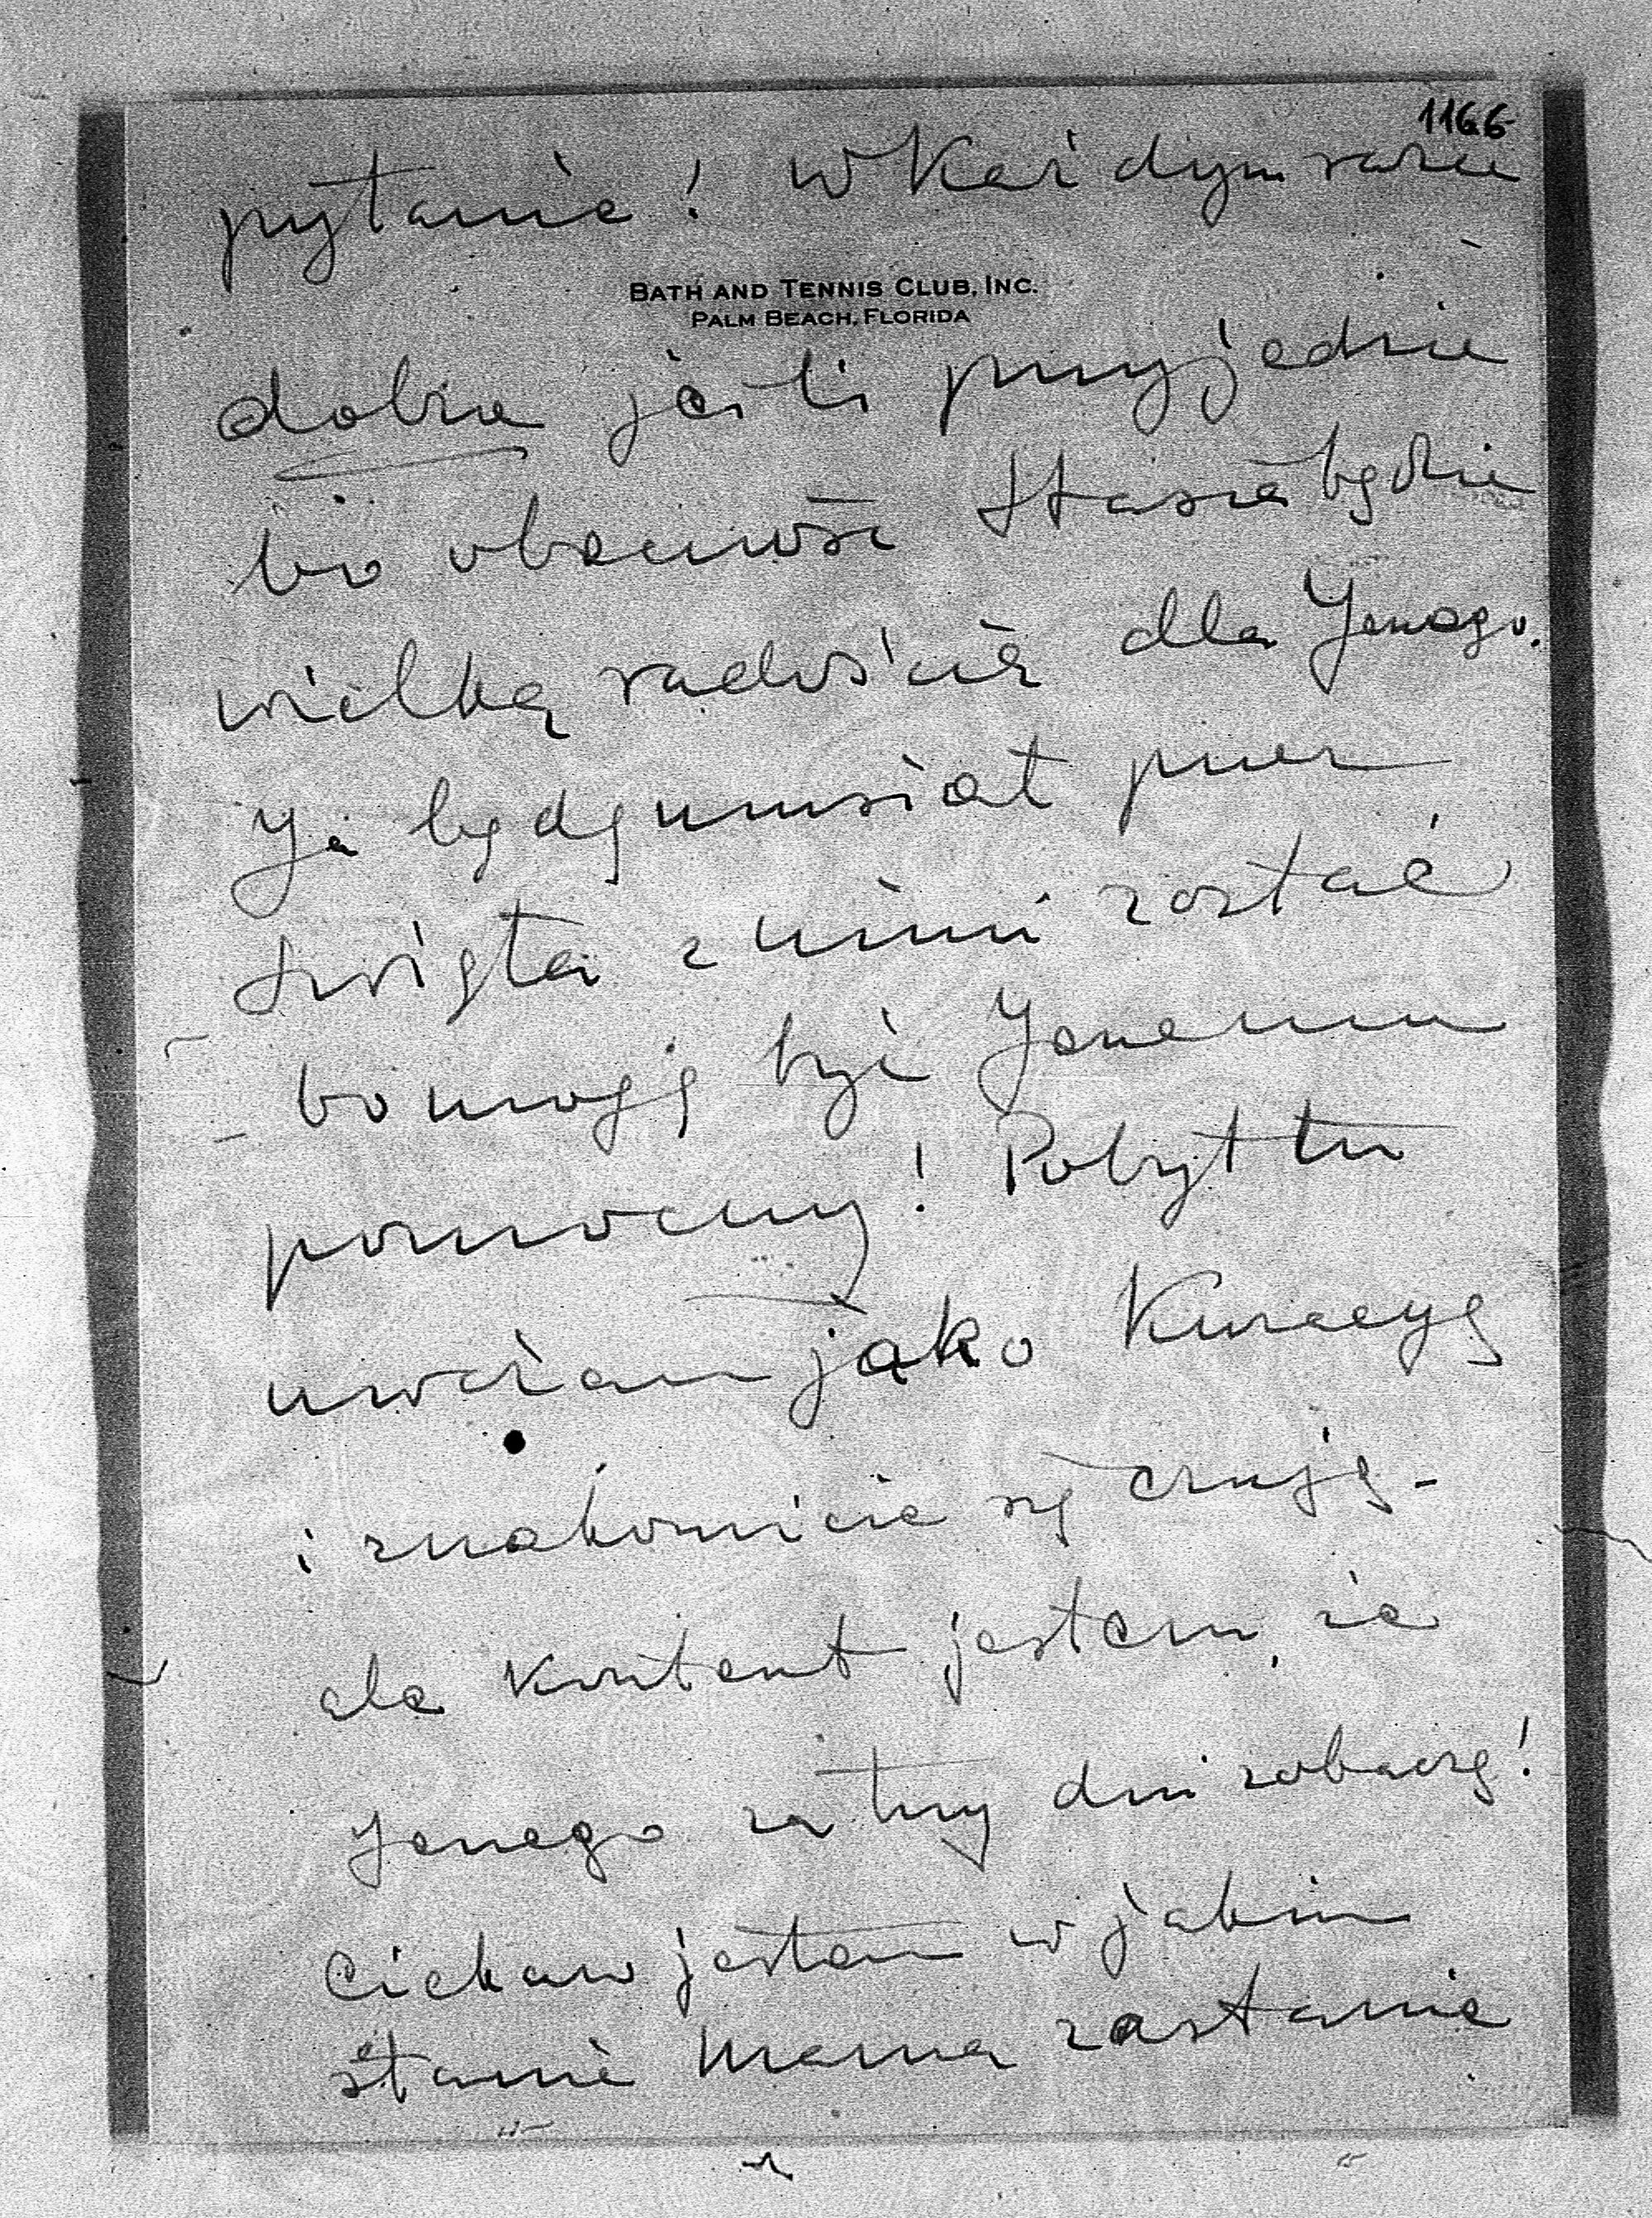 1166
pytanie! W każdym razie
BATH AND TENNIS CLUB, INC.
PALM BEACH, FLORIDA
dobrze jeśli przyjedzie
bo obecność Stasia będzie
wielką radością dla Jenego.
Ja będę musiał przez
Święta z nimi zostać
bo mogę być Jenemu
pomocny! Pobyt tu
uważam jako Kuracyę
i znakomicie się czuję -
ale kontent jestem, że
Jenego za trzy dni zobaczę!
Ciekaw jestem w jakim
stanie Mama zastanie